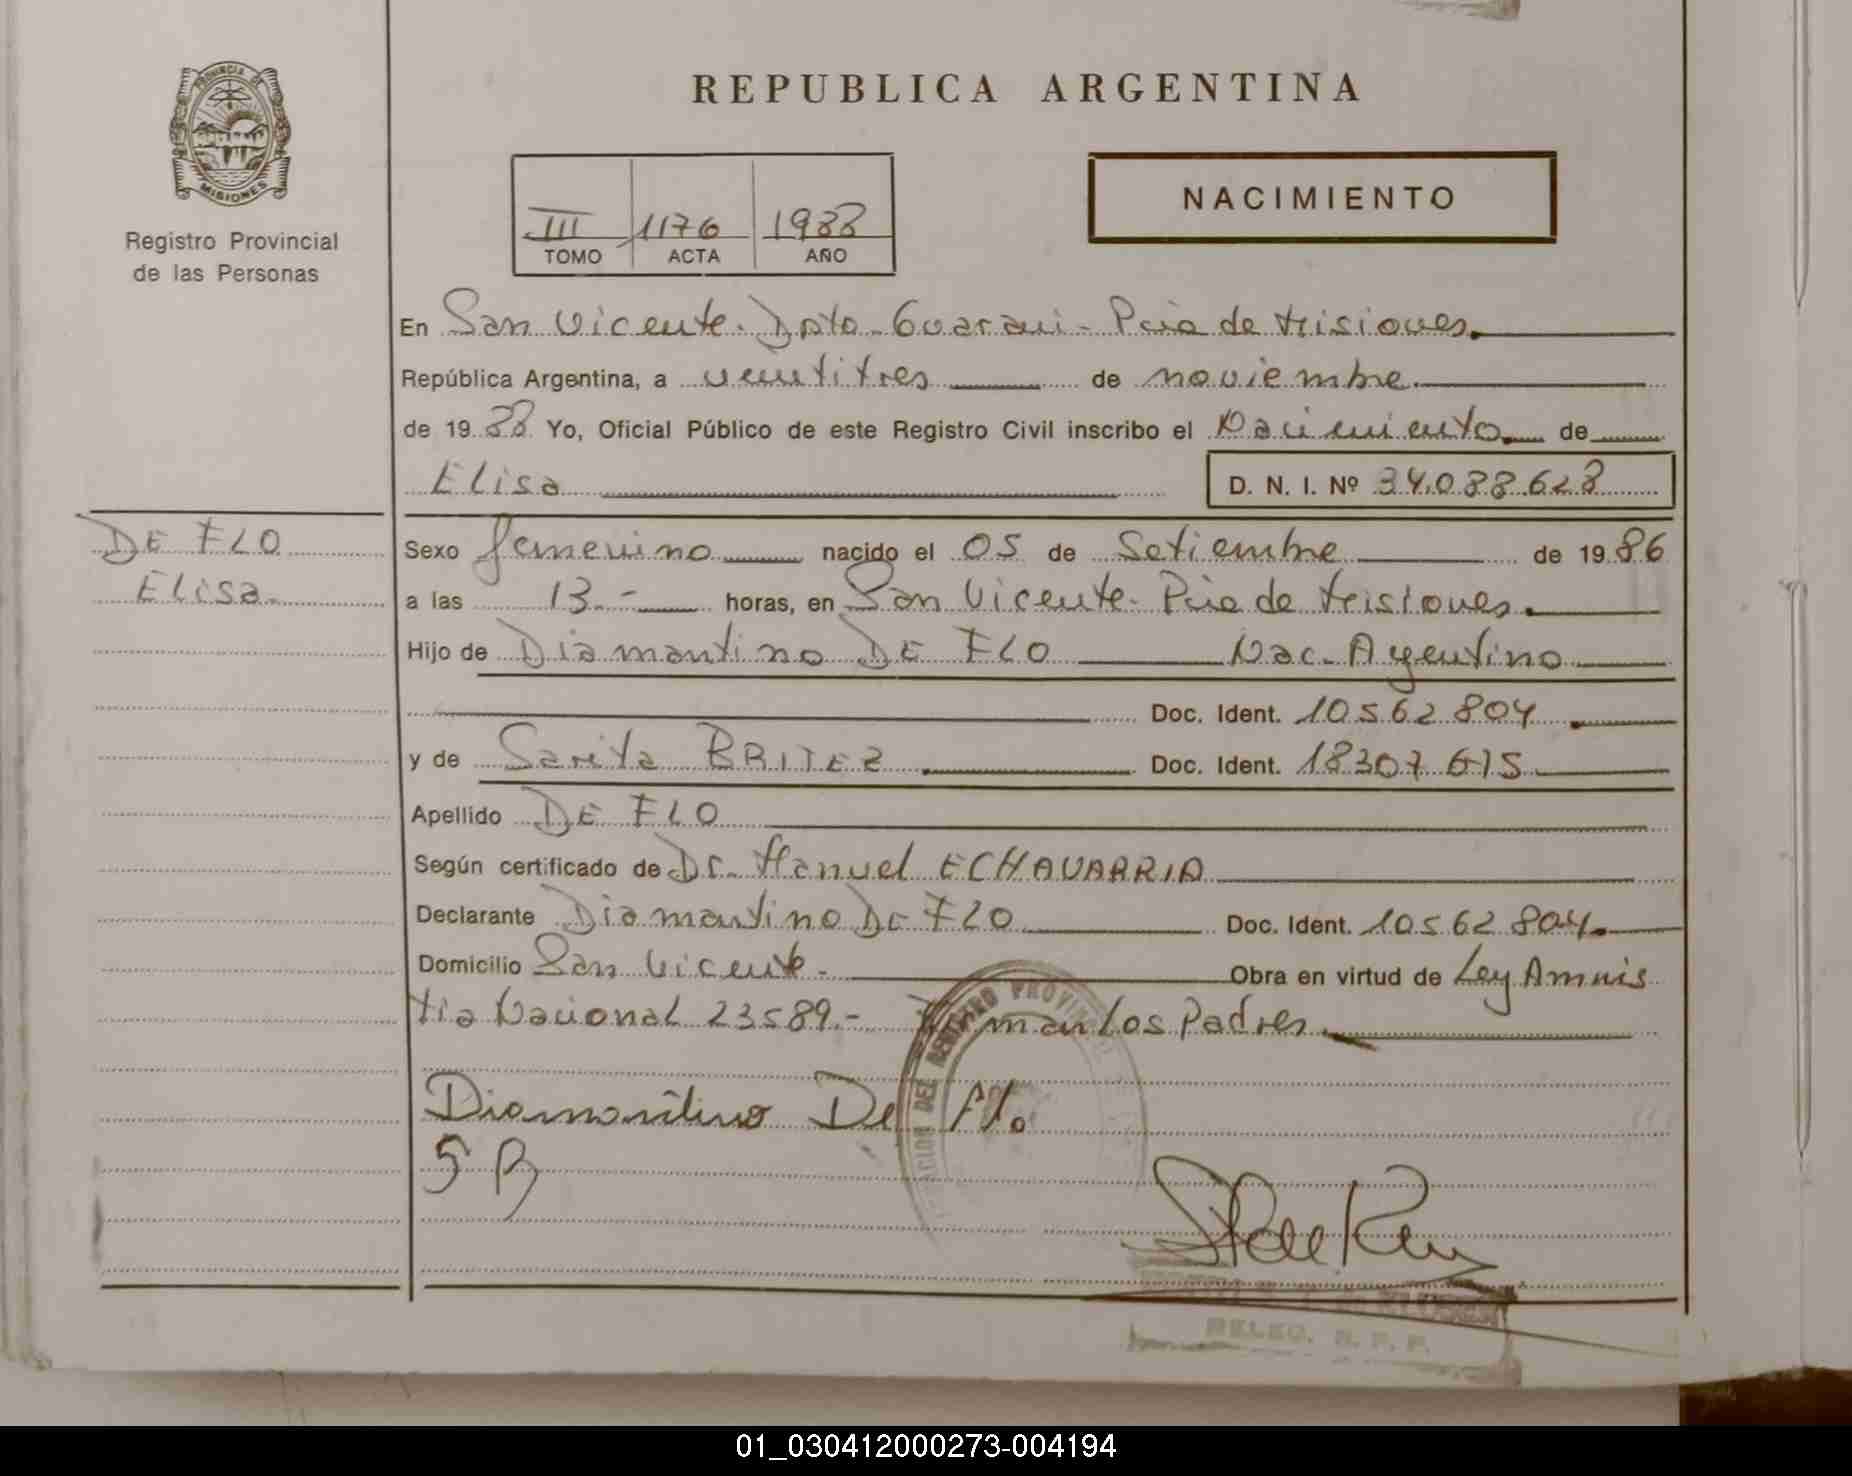 REPUBLICA ARGENTINA
PROVINCIA DE
MISIONES
Registro Provincial
de las Personas
III 1176 1988
TOMO ACTA AÑO
NACIMIENTO
En San Vicente. Dpto. Guarani - Pcia de Misiones.
República Argentina, a veintitres de noviembre.
de 1988 Yo, Oficial Público de este Registro Civil inscribo el Nacimiento de
Elisa D. N. I. Nº 34.088.628
DE FLO
Elisa.
Sexo femenino nacido el 05 de Setiembre de 1986
a las 13.- horas, en San Vicente. Pcia de Misiones.
Hijo de Diamantino DE FLO Nac. Argentino
Doc. Ident. 10562804.
y de Sarita BRITEZ Doc. Ident. 18307615
Apellido DE FLO
Según certificado de Dr. Manuel ECHAVARRIA
Declarante Diamantino DE FLO Doc. Ident. 10562804.
Domicilio San Vicente. Obra en virtud de Ley Amnis
tia Nacional 23589.- Firman los Padres.
Diamantino De Flo
S B
DEL REGISTRO PROVIN
R. P. P.